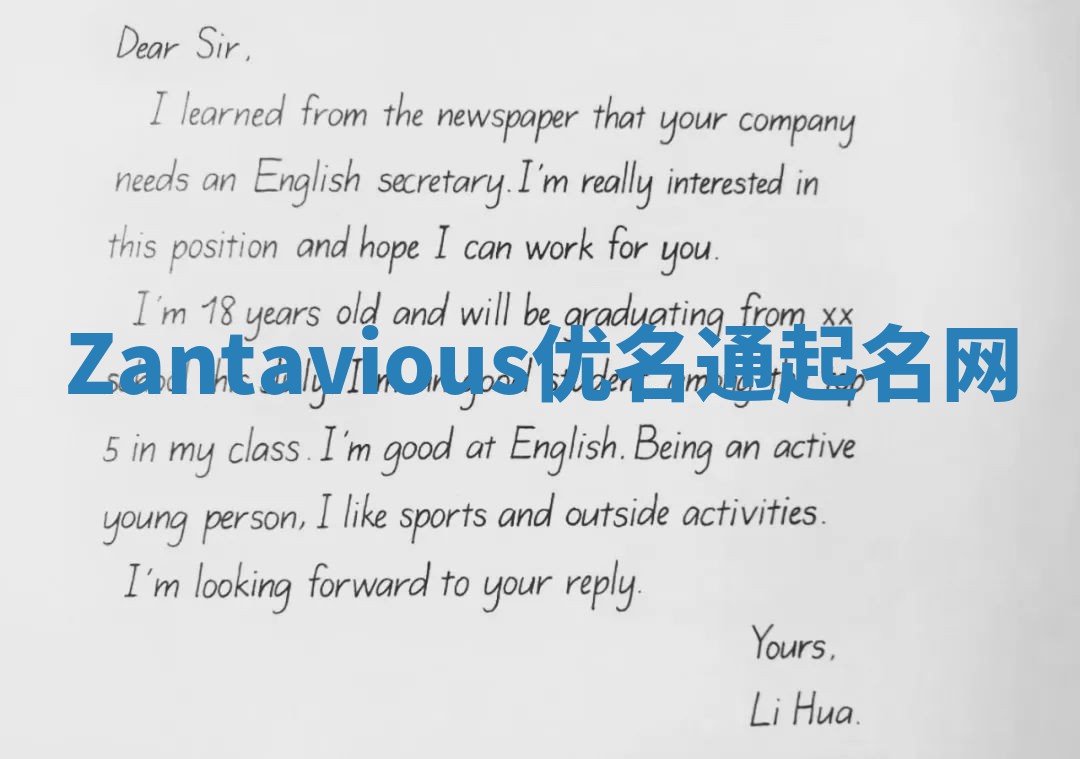 Dear Sir,
I learned from the newspaper that your company
needs an English secretary. I'm really interested in
this position and hope I can work for you.
I'm 18 years old and will be graduating from xx
Zantavious优名通起名网
school this July. I'm a good student among the top
5 in my class. I'm good at English. Being an active
young person, I like sports and outside activities.
I'm looking forward to your reply.
Yours,
Li Hua.